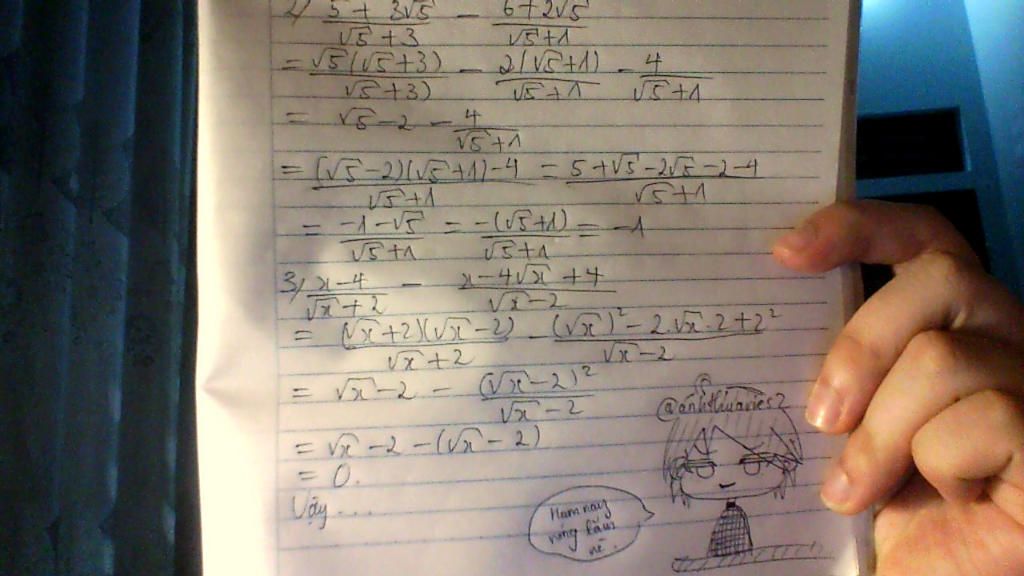 2) (5 + 3√5)/(√5 + 3) - (6 + 2√5)/(√5 + 1)
= (√5(√5 + 3))/(√5 + 3) - (2(√5 + 1))/(√5 + 1) - 4/(√5 + 1)
= √5 - 2 - 4/(√5 + 1)
= ((√5 - 2)(√5 + 1) - 4)/(√5 + 1) = (5 + √5 - 2√5 - 2 - 4)/(√5 + 1)
= (-1 - √5)/(√5 + 1) = (-(√5 + 1))/(√5 + 1) = -1
3) (x - 4)/(√x + 2) - (x - 4√x + 4)/(√x - 2)
= ((√x + 2)(√x - 2))/(√x + 2) - ((√x)² - 2.√x.2 + 2²)/(√x - 2)
= √x - 2 - (√x - 2)²/(√x - 2)
= √x - 2 - (√x - 2)
= 0.
Vậy ...
@anhthuaries2
Hôm nay
nóng lắm
nè.